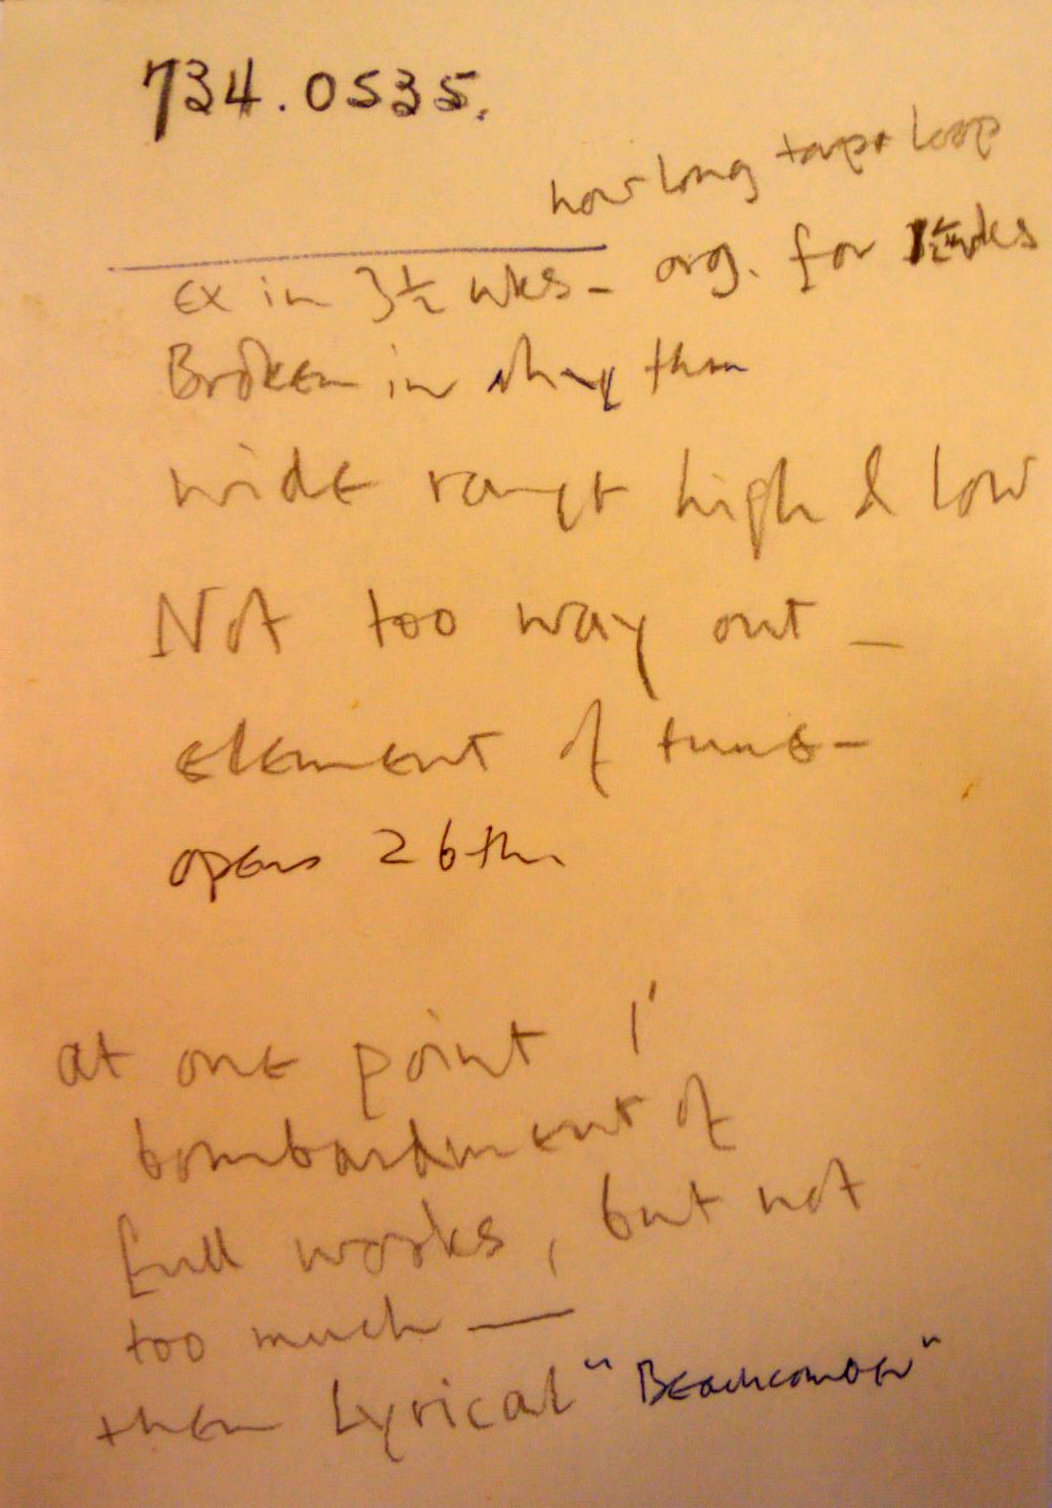 734.0535.
how long tape loop
ex in 3½ wks - org. for wks
Broken in rhy them
wide range high & low
Not too way out -
element of tune -
opens 26th.
at one point 1'
bombardment of
full works, but not
too much —
then Lyrical "Beachcomber"